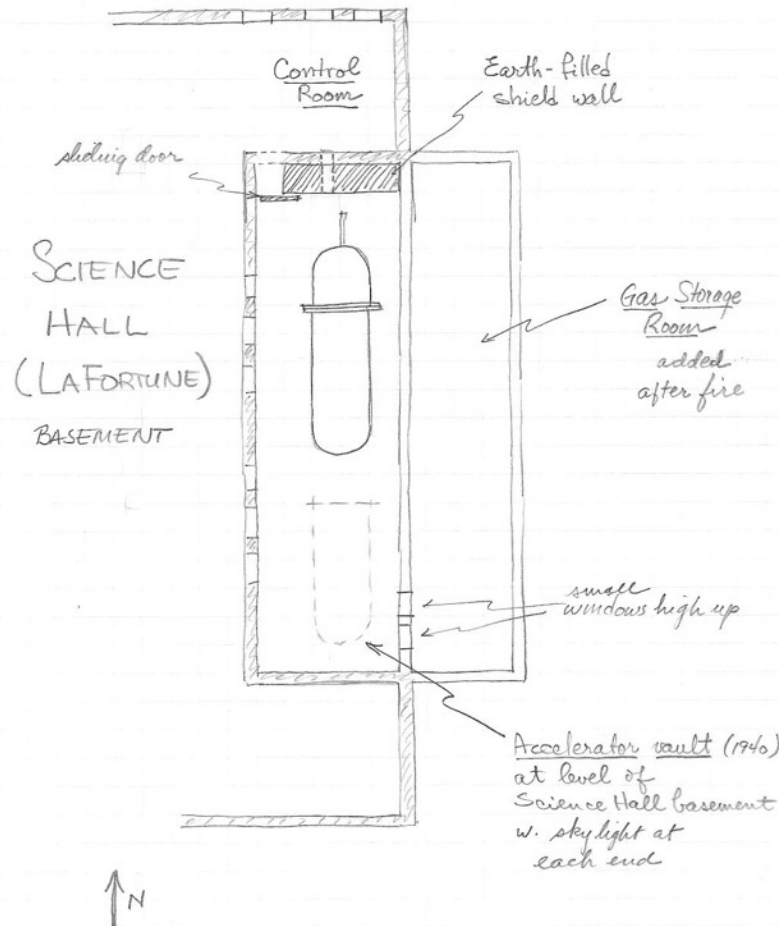 Control
Room
Earth-filled
shield wall
sliding door
SCIENCE
HALL
(LAFORTUNE)
BASEMENT
Gas Storage
Room
added
after fire
small
windows high up
Accelerator vault (1940)
at level of
Science Hall basement
w. skylight at
each end
N